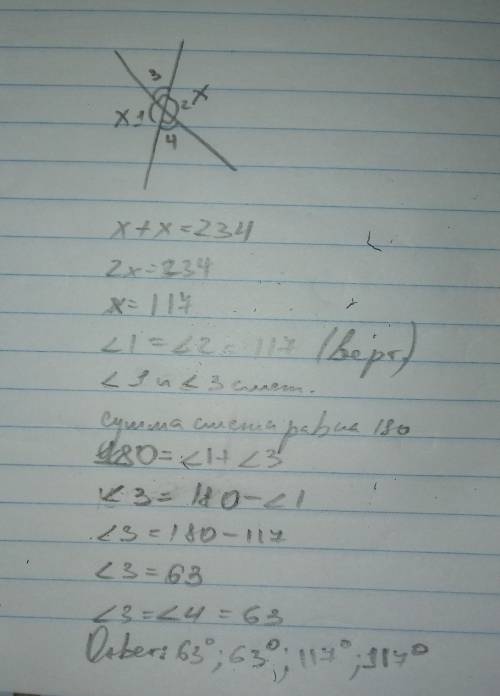 3
x 1 2 x
4
x+x=234
2x=234
x=117
∠1=∠2=117 (верт)
∠1 и ∠3 смеж.
сумма смежн равна 180
180=∠1+∠3
∠3=180-∠1
∠3=180-117
∠3=63
∠3=∠4=63
Ответ: 63°; 63°; 117°; 117°